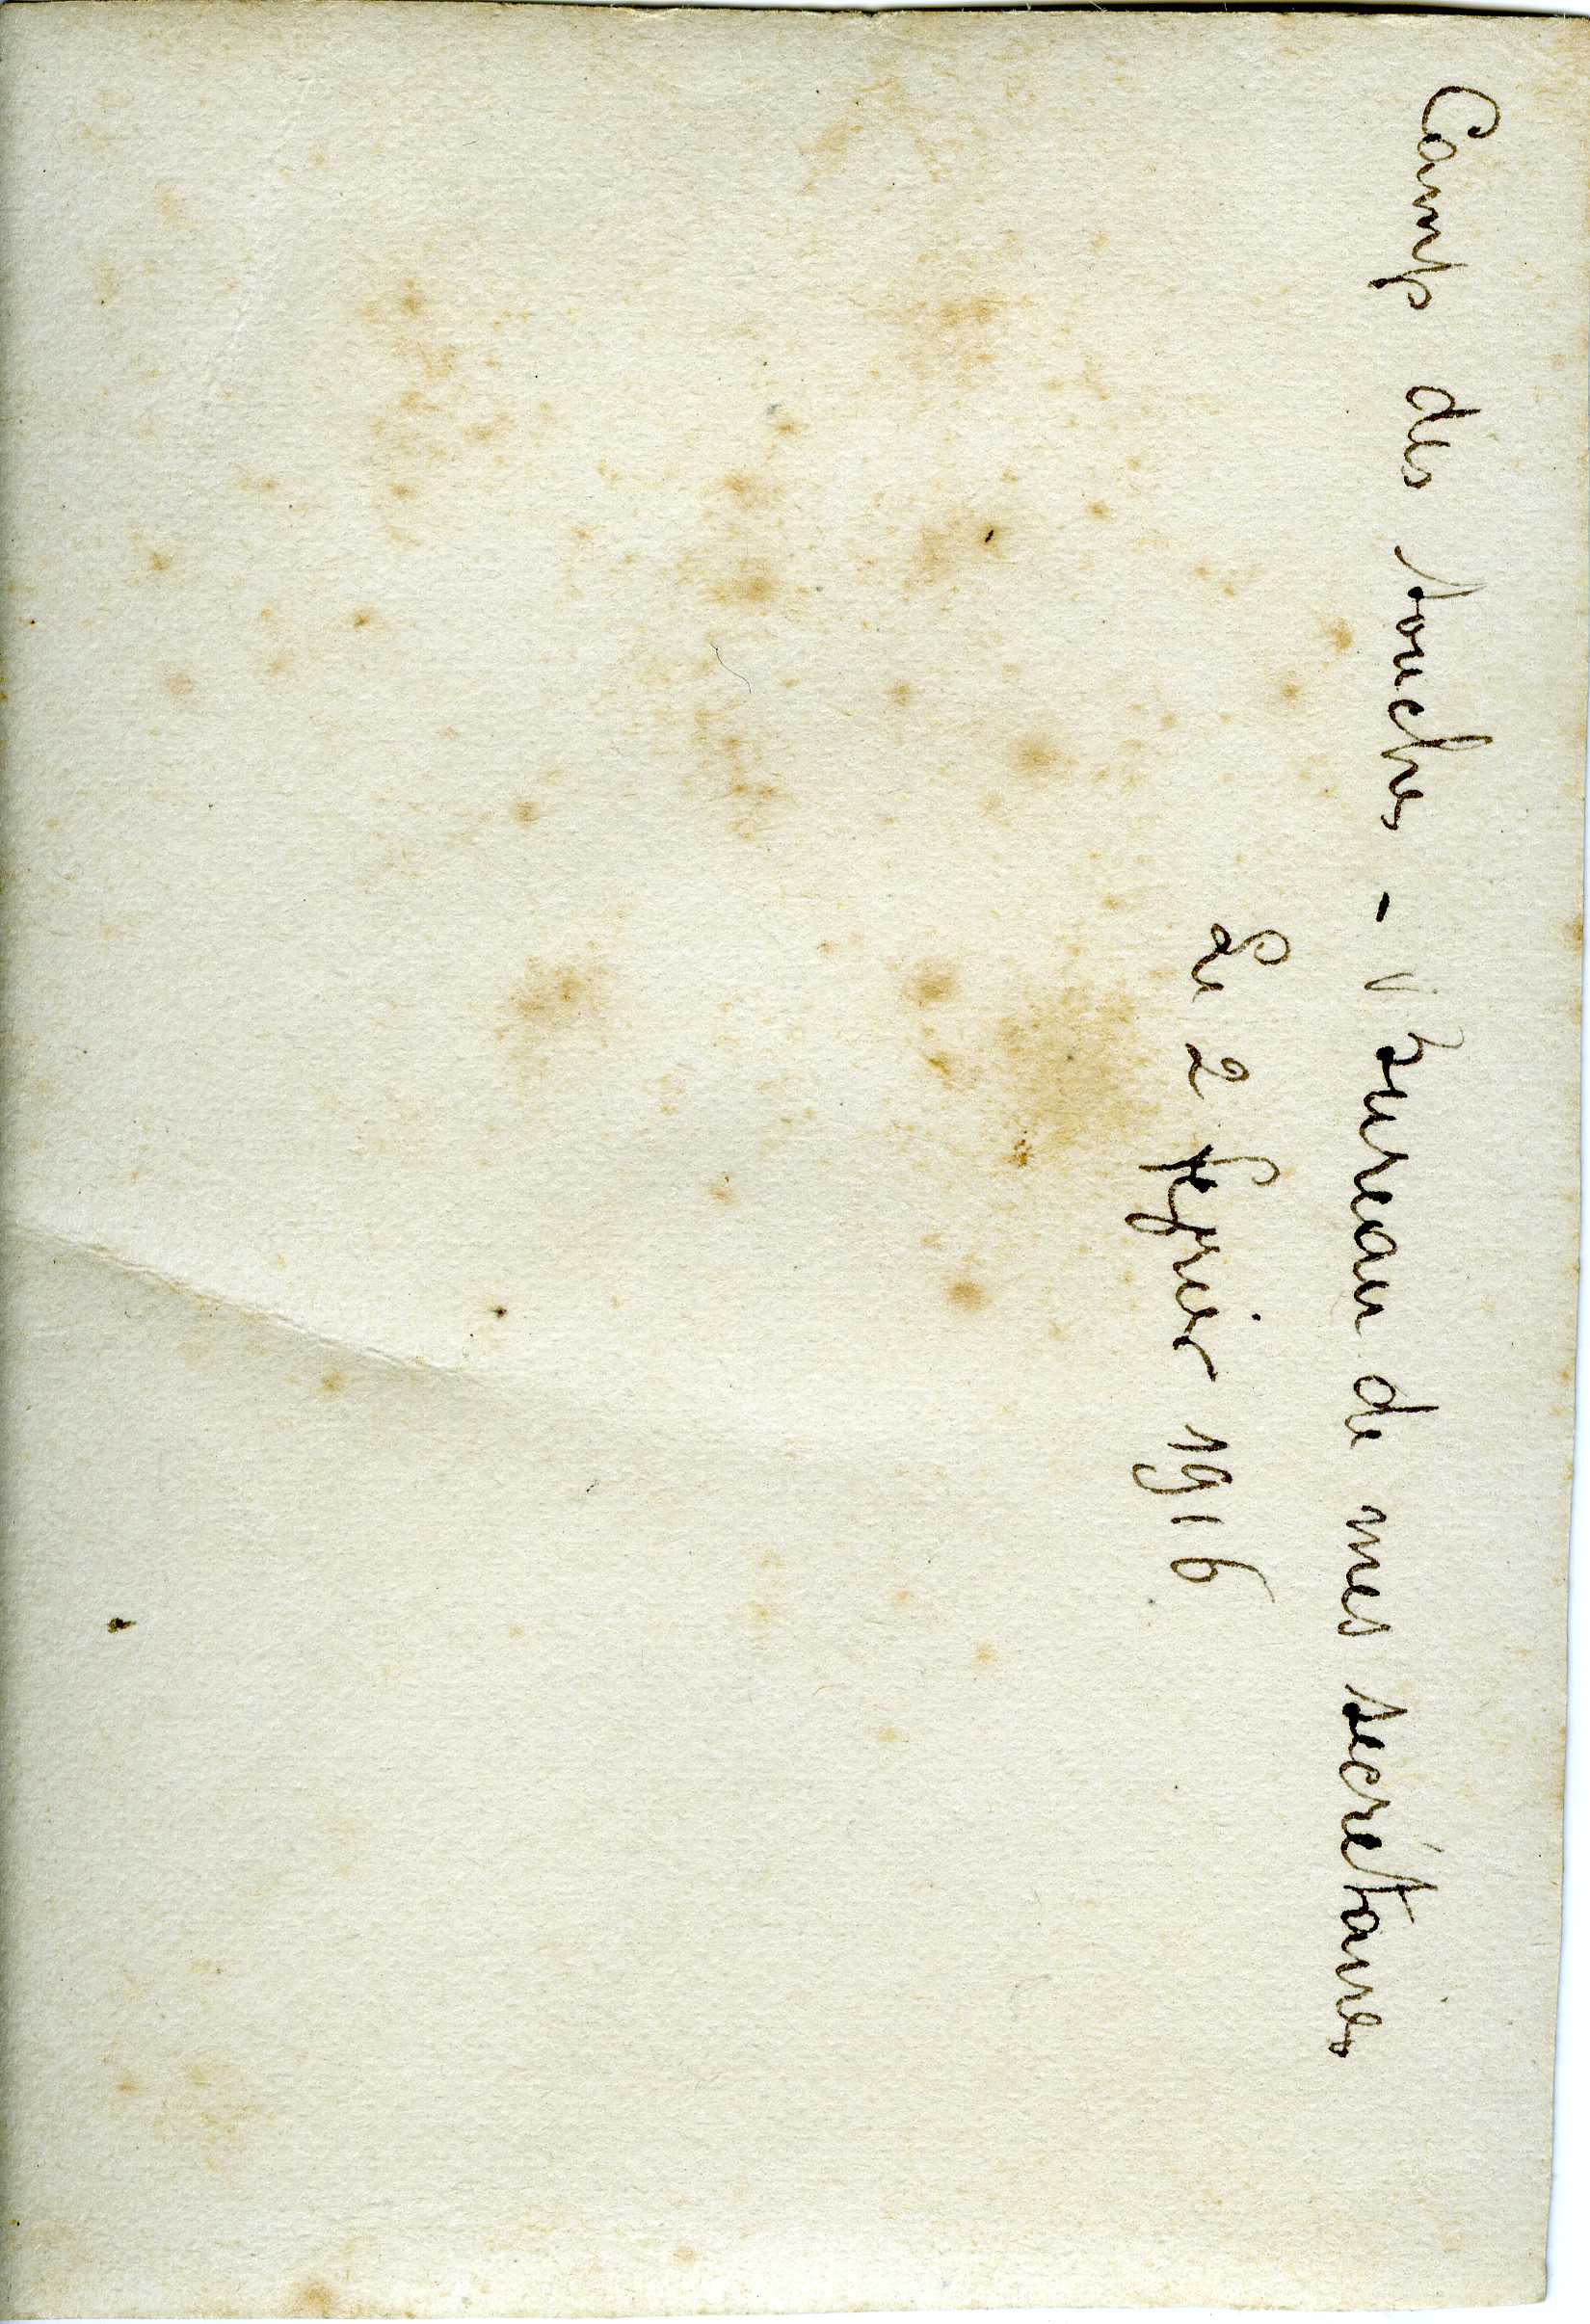 Camp des touches - Bureau de mes secrétaires
Le 2 fevrier 1916